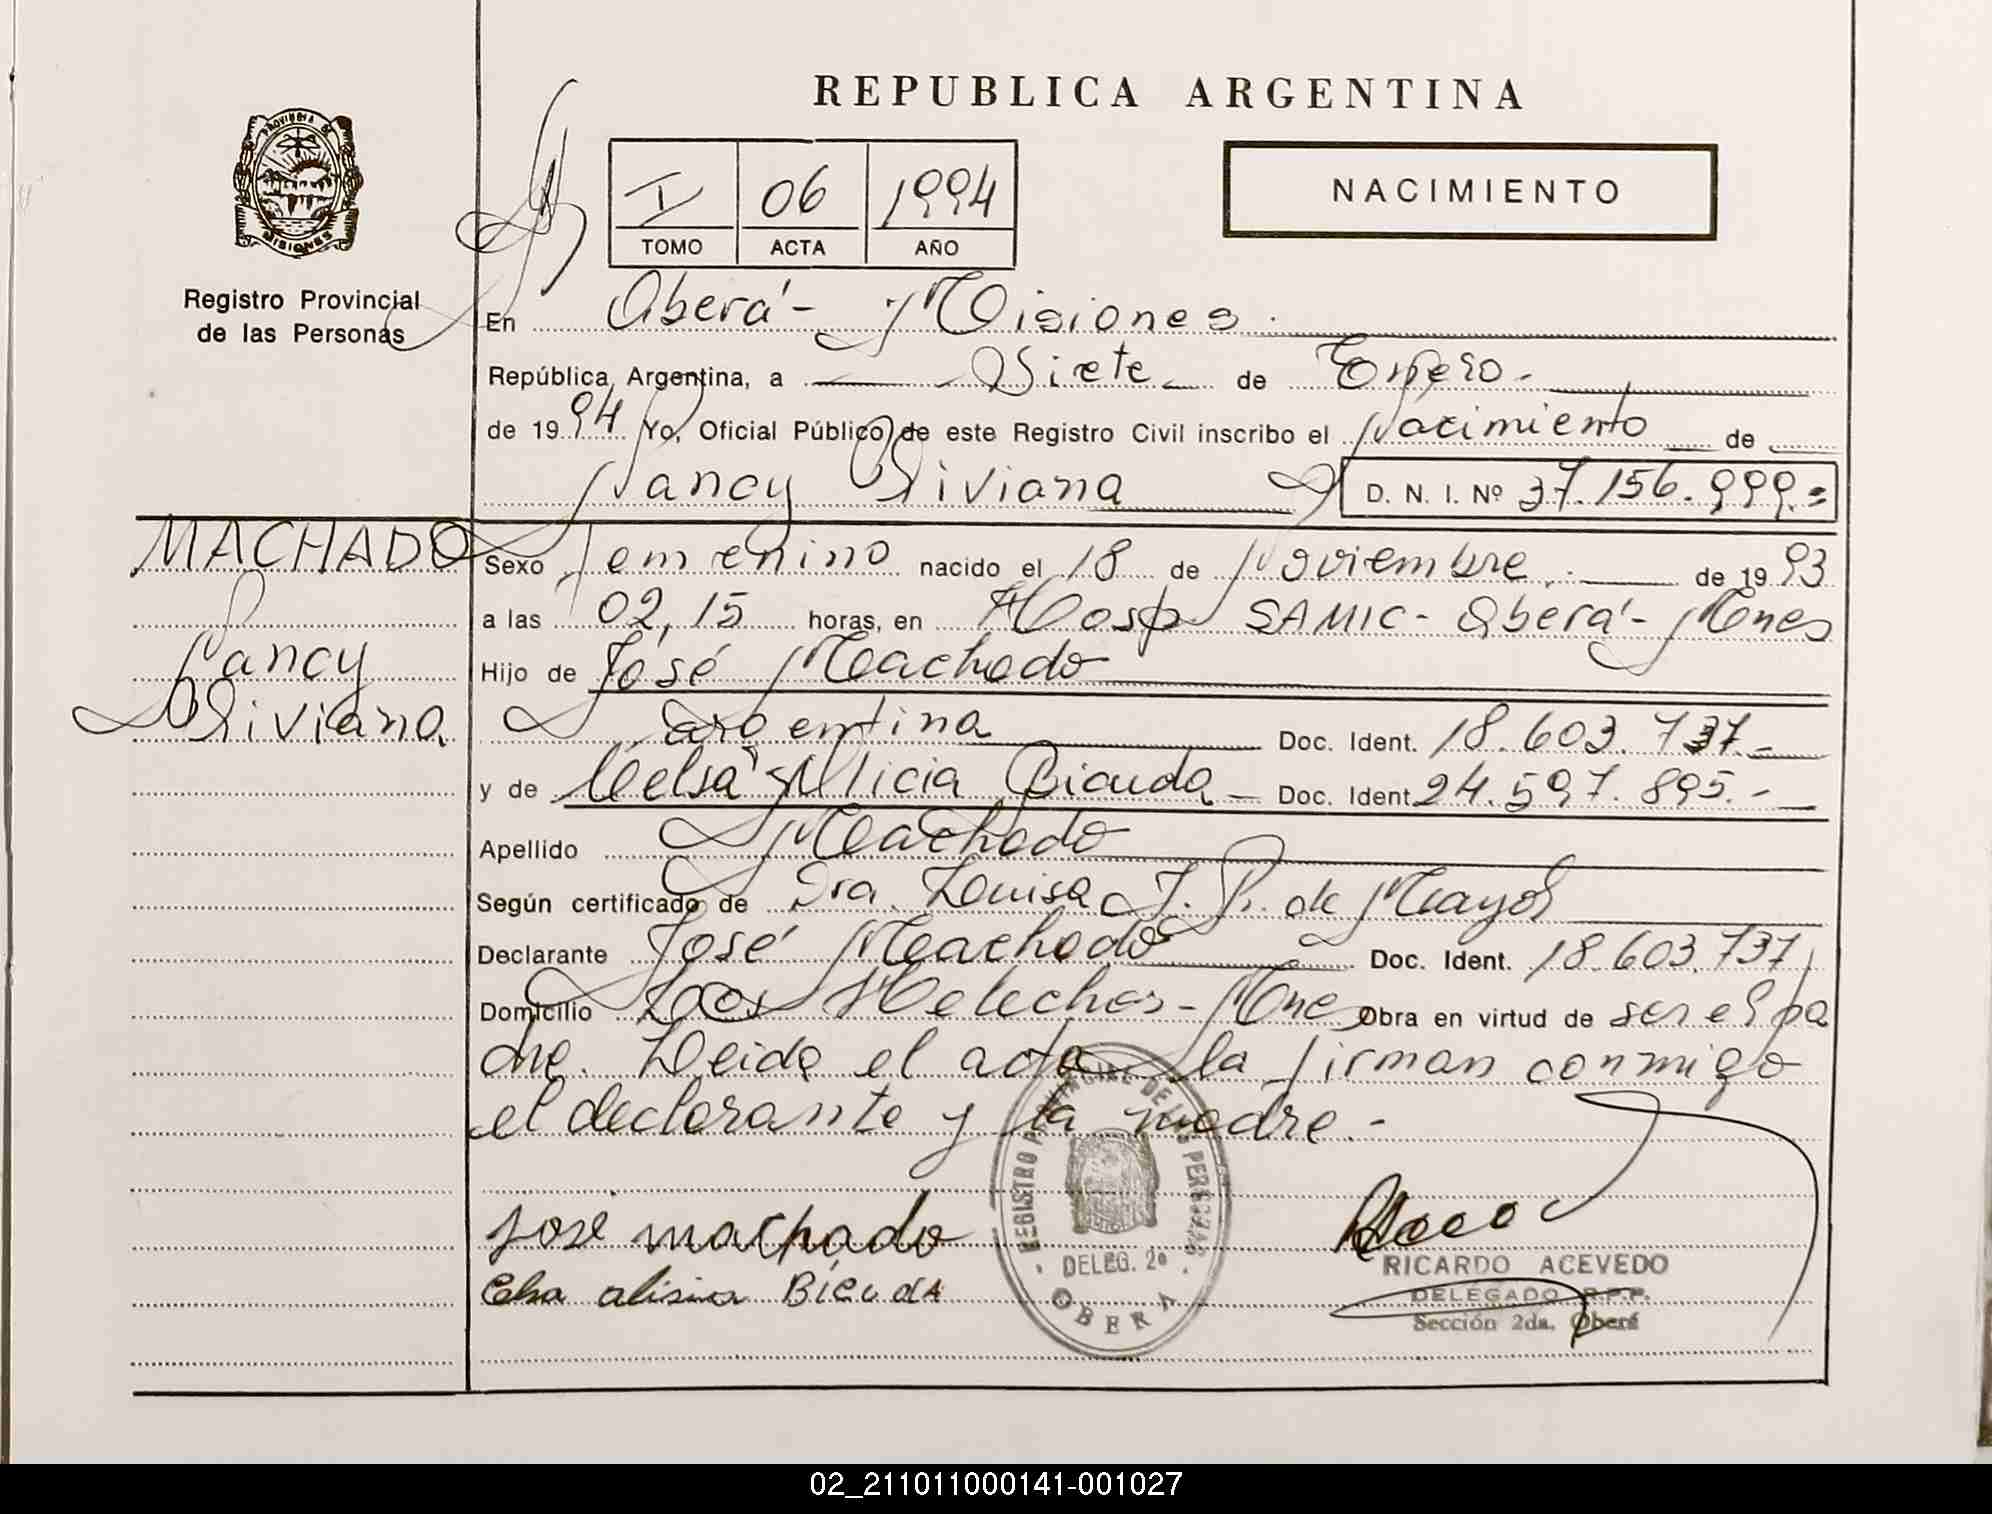 REPUBLICA ARGENTINA
PROVINCIA DE
MISIONES
Registro Provincial
de las Personas
I 06 1994
TOMO ACTA AÑO
NACIMIENTO
En Oberá - Misiones.
República Argentina, a Siete de Enero.
de 1994 Yo, Oficial Público de este Registro Civil inscribo el Nacimiento de
Nancy Viviana D. N. I. Nº 37.156.999.=
MACHADO
Nancy
Viviana
Sexo femenino nacido el 18 de Noviembre.- de 1993
a las 02,15 horas, en Hosp SAMIC - Oberá - Mnes
Hijo de José Machado
argentina Doc. Ident. 18.603.737.-
y de Alicia Bicuda - Doc. Ident. 24.597.895.-
Apellido Machado
Según certificado de Dra. Luisa J. P. de Mayol
Declarante José Machado Doc. Ident. 18.603.737
Domicilio Los Helechos - Mnes Obra en virtud de ser el pa
dre. Leida el acta la firman conmigo
el declarante y la madre.-
REGISTRO PROVINCIAL DE LAS PERSONAS
DELEG. 2ª
OBERA
jose machado
alisia Bicuda
RICARDO ACEVEDO
DELEGADO R.P.P.
Sección 2da. Oberá
02_211011000141-001027